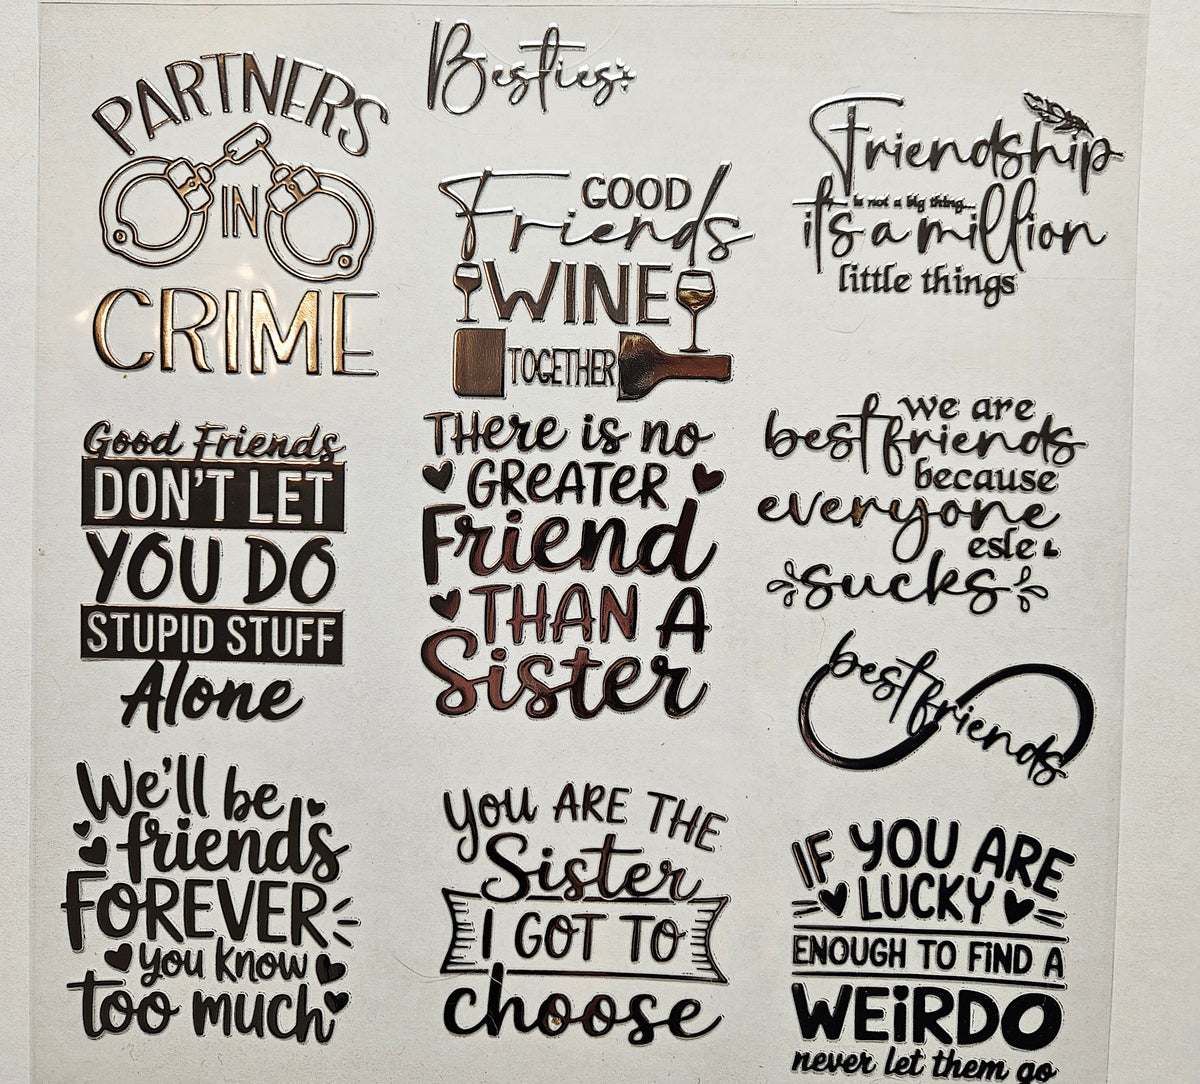 PARTNERS
IN
CRIME
Good Friends
DON'T LET
YOU DO
STUPID STUFF
Alone
We'll be
friends
FOREVER
you know
too much
Besties
GOOD
Friends
WINE
TOGETHER
THere is no
GREATER
Friend
THAN A
Sister
you ARE THE
Sister
I GOT TO
choose
Friendship
is not a big thing...
it's a million
little things
we are
best friends
because
everyone
esle
sucks
best friends
IF YOU ARE
LUCKY
ENOUGH TO FiND A
WEiRDO
never let them go